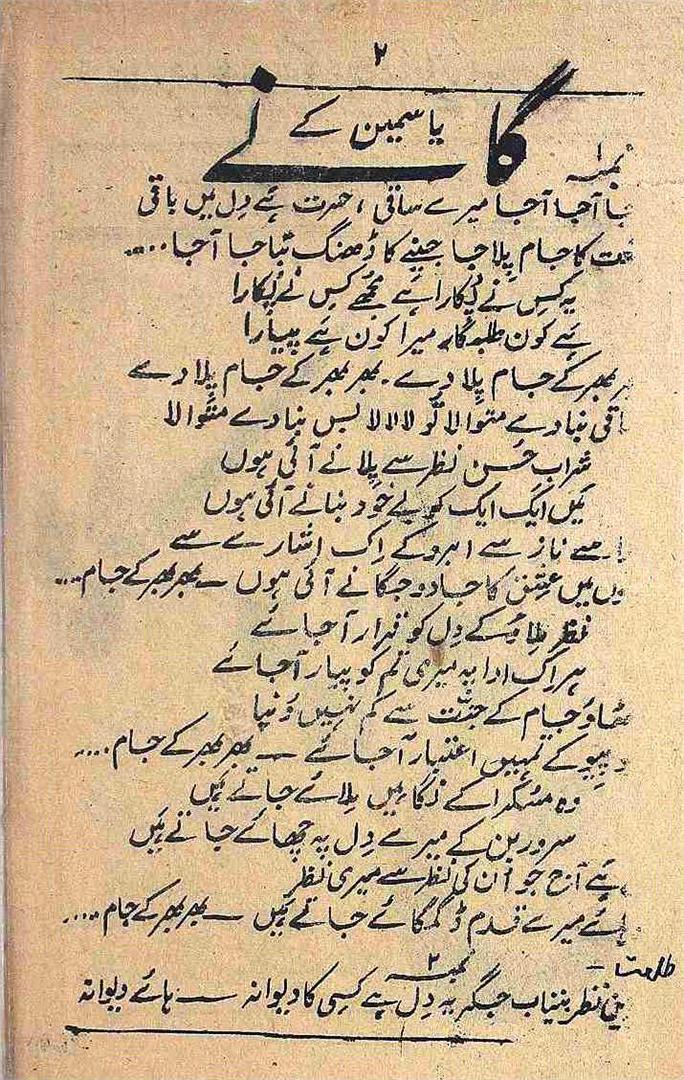 ۲
یاسمین کے
گانے
نمبر ۱
آجا آجا میرے ساقی ، حسرت ہے دِل میں باقی
کا جام پِلا جا جینے کا ڈھنگ بتا جا آجا....
یہ کِس نے پُکارا ہے مجُھے کِس نے پُکارا
ہے کون طلبگار میرا کون ہے پیارا
بھر کے جام پِلا دے ۔ بھر بھر کے جام پِلا دے
بنا دے متوالا لالا بس بنا دے متوالا
شراب حُسن نظر سے پِلانے آئی ہوں
میں ایک ایک کو بے خود بنانے آئی ہوں
سے ناز سے ابرو کے اِک اشارے سے
میں عشق کا جادو جگانے آئی ہوں ــ بھر بھر کے جام....
نظر کے دِل کو قرار آ جائے
ہر اک ادا پہ میری تم کو پیار آ جائے
جام کے جنّت سے کم نہیں دُنیا
کے تمہیں اعتبار آ جائے ــ بھر بھر کے جام....
وہ مسُکرا کے نگاہیں مِلائے جاتے ہَیں
سرور بن کے میرے دِل پہ چھائے جاتے ہَیں
ہے آج جو اُن کی نظر سے میری نظر
میرے قدم ڈگمگائے جاتے ہَیں ــ بھر بھر کے جام.....
طلعت ـ
نمبر ۲
نظر بیتاب جگر یہ دِل ہے کسِی کا دیوانہ ــ ہائے دیوانہ